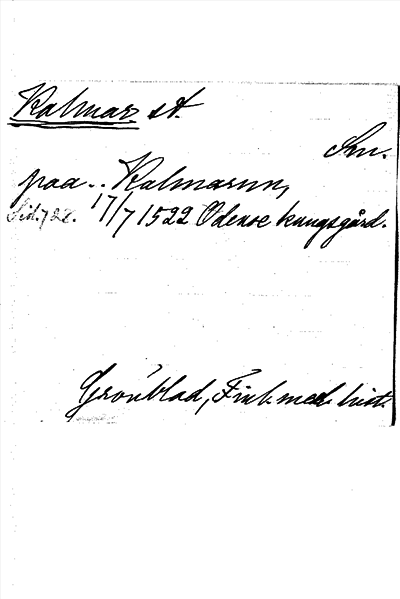 Kalmar st.
Sm.
paa .. Kalmarnn,
17/7 1522 Odense kungsgård.
Grönblad, Finl. med. hist.